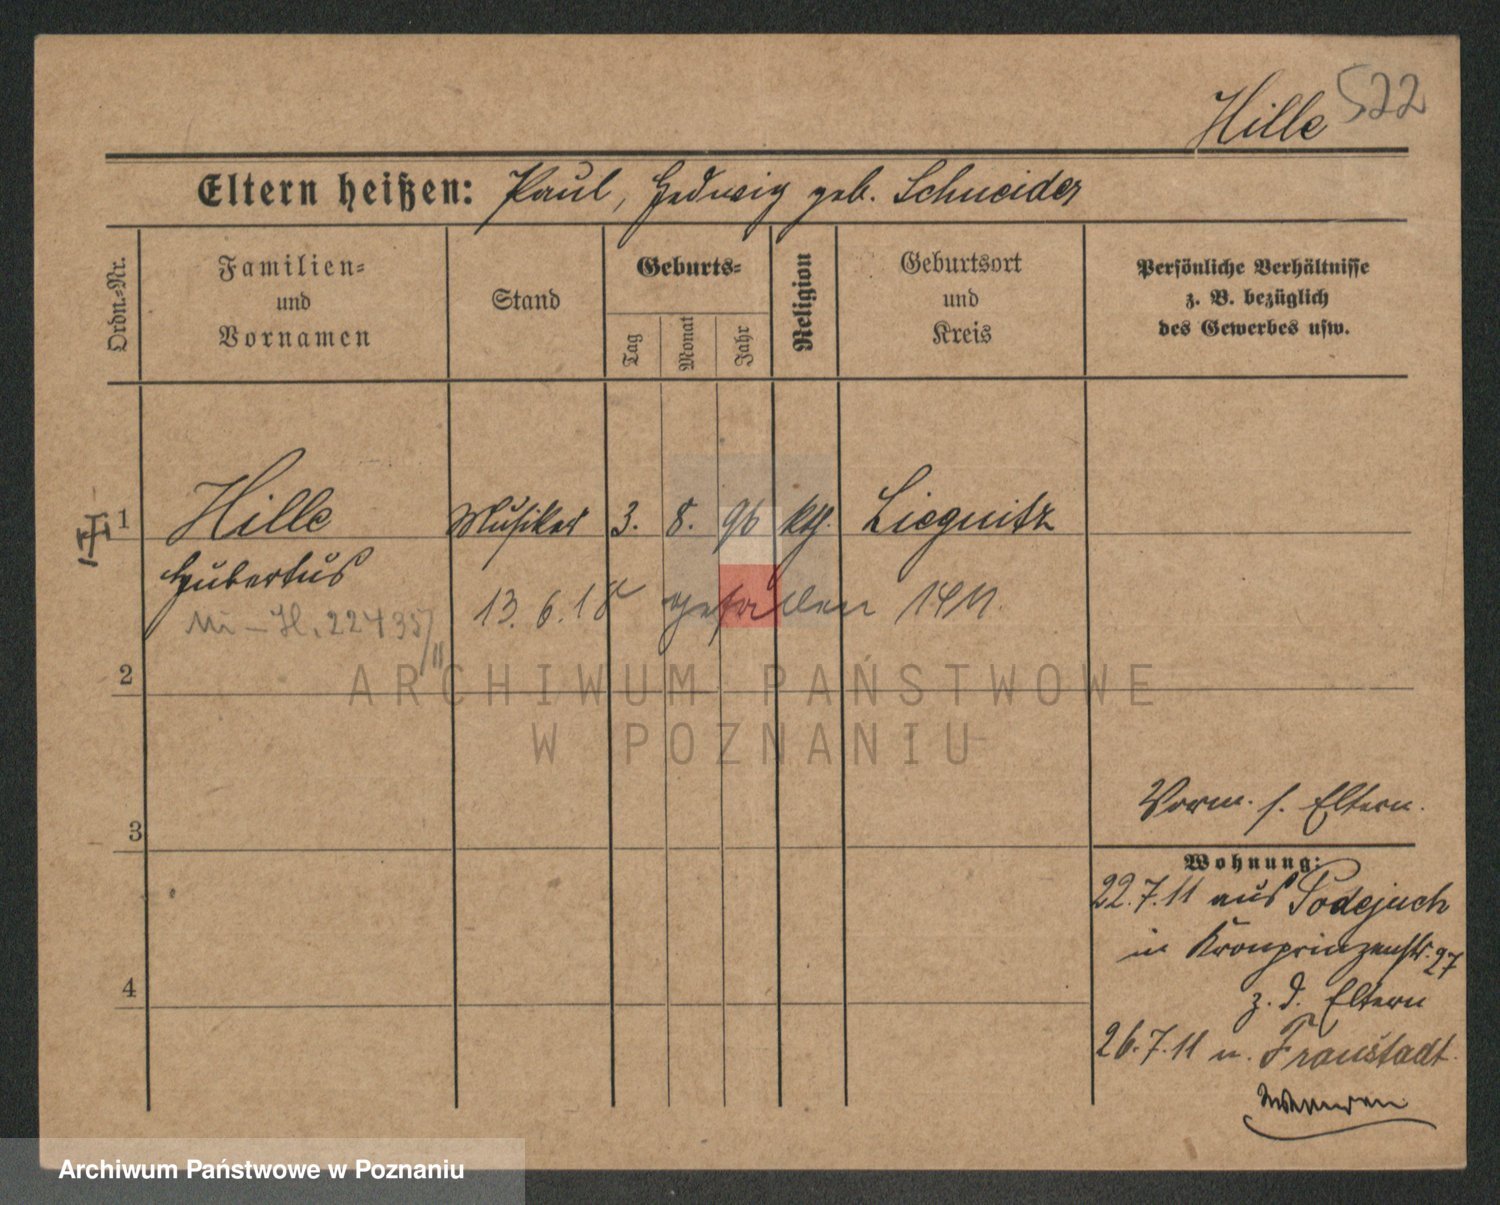 522
Hille
Eltern heißen: Paul, Hedwig geb. Schneider
Ordn.-Nr.
Familien-
und
Vornamen
Stand
Geburts-
Tag
Monat
Jahr
Religion
Geburtsort
und
Kreis
Persönliche Verhältnisse
z. B. bezüglich
des Gewerbes usw.
1 Hille Musiker 3. 8. 96 kth. Liegnitz
Hubertus
13. 6. 18 gefallen
22435/11
2
ARCHIWUM PAŃSTWOWE
W POZNANIU
3
Vorm. s. Eltern.
Wohnung:
22.7.11 aus Podejuch
in Kronprinzenstr. 27
4
z. d. Eltern
26.7.11 n. Fraustadt.
Archiwum Państwowe w Poznaniu